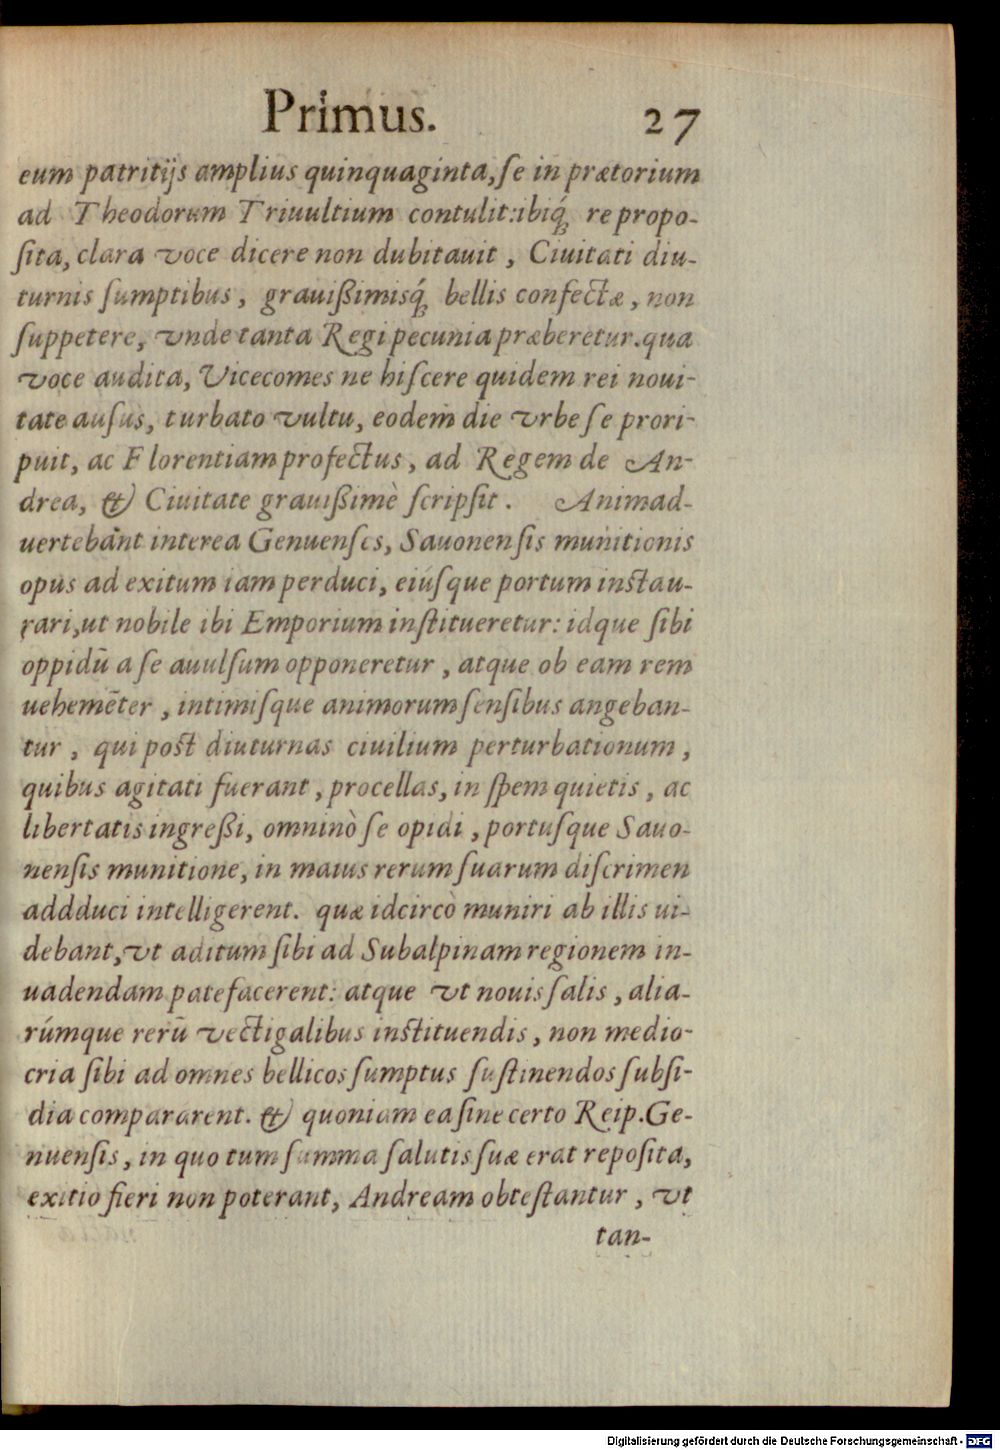 Primus. 27
eum patritijs amplius quinquaginta, ſe in prætorium
ad Theodorum Triuultium contulit: ibiq́; re propo-
ſita, clara voce dicere non dubitauit, Ciuitati diu-
turnis ſumptibus, grauißimisq́; bellis confectæ, non
ſuppetere, vnde tanta Regi pecunia præberetur. qua
voce audita, Vicecomes ne hiſcere quidem rei noui-
tate auſus, turbato vultu, eodem die vrbe ſe prori-
puit, ac Florentiam profectus, ad Regem de An-
drea, & Ciuitate grauißimè ſcripſit. Animad-
uertebant interea Genuenſes, Sauonenſis munitionis
opus ad exitum iam perduci, eiúſque portum inſtau-
rari, ut nobile ibi Emporium inſtitueretur: idque ſibi
oppidū a ſe auulſum opponeretur, atque ob eam rem
uehemēter, intimiſque animorum ſenſibus angeban-
tur, qui poſt diuturnas ciuilium perturbationum,
quibus agitati fuerant, procellas, in ſpem quietis, ac
libertatis ingreßi, omninò ſe opidi, portuſque Sauo-
nenſis munitione, in maius rerum ſuarum diſcrimen
addduci intelligerent. quæ idcircò muniri ab illis ui-
debant, vt aditum ſibi ad Subalpinam regionem in-
uadendam patefacerent: atque vt nouis ſalis, alia-
rúmque rerū vectigalibus inſtituendis, non medio-
cria ſibi ad omnes bellicos ſumptus ſuſtinendos ſubſi-
dia compararent. & quoniam ea ſine certo Reip. Ge-
nuenſis, in quo tum ſumma ſalutis ſuæ erat repoſita,
exitio fieri non poterant, Andream obteſtantur, vt
tan-
Digitalisierung gefördert durch die Deutsche Forschungsgemeinschaft - DFG